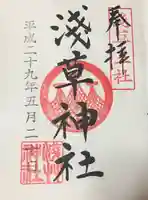 奉拝
淺草神社
平成二十九年五月二十日